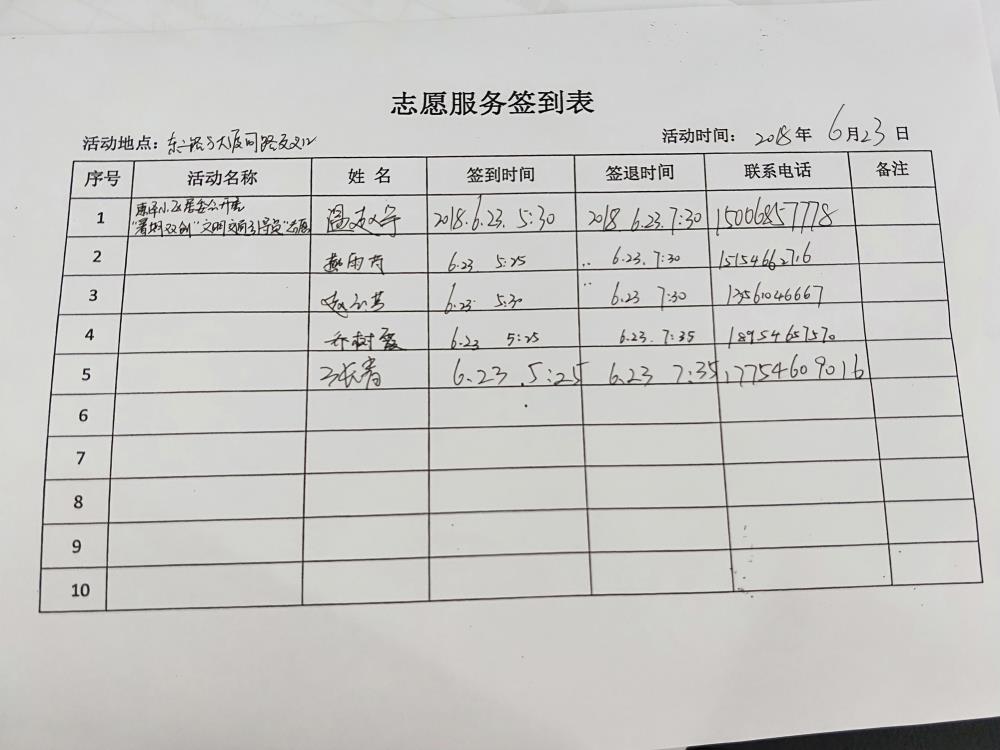 志愿服务签到表
活动地点：东二路与大渡河路交叉口 活动时间： 2018年 6月23日
序号 活动名称 姓 名 签到时间 签退时间 联系电话 备注
1 居委会开展 2018.6.23. 5:30 2018.6.23.7:30 15006857778
"暑期双创"文明交通引导员"志愿
2 赵雨芳 6.23. 5:25 6.23. 7:30 15154662716
3 6.23 5:30 6.23 7:30 13561046667
4 乔树霞 6.23 5:25 6.23. 7:35 18954657570
5 张青 6.23 .5:25 6.23 7:35 17754609016
6
7
8
9
10